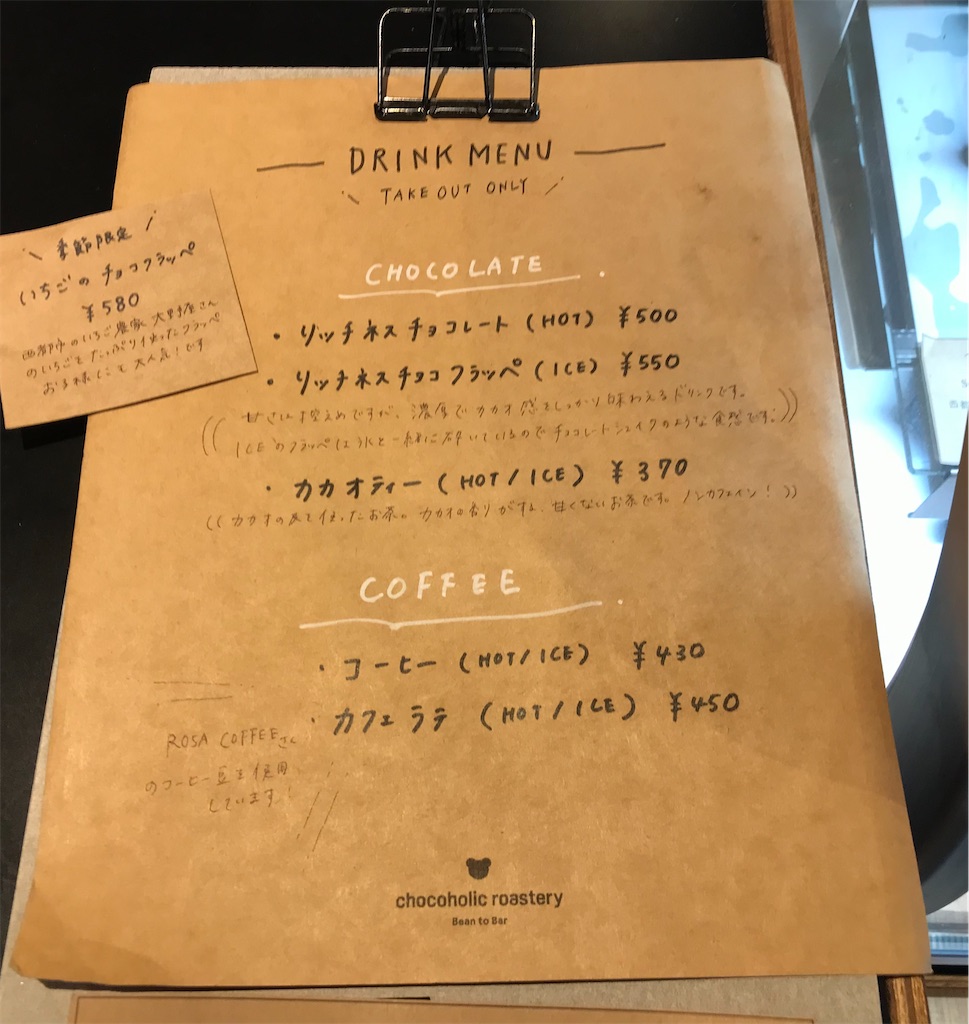 DRINK MENU
TAKE OUT ONLY
季節限定
いちごの チョコフラッペ
¥580
西都市のいちご農家 大野屋さん
のいちごをたっぷり使ったフラッペ
お子様にも大人気!です
CHOCOLATE
・リッチネスチョコレート (HOT) ¥500
・リッチネスチョコフラッペ (ICE) ¥550
((甘さは控えめですが、濃厚でカカオ感をしっかり味わえるドリンクです。
ICEのフラッペは氷と一緒に砕いているのでチョコレートシェイクのような食感です。))
・カカオティー (HOT/ICE) ¥370
((カカオの皮を使ったお茶。カカオの香りがする、甘くないお茶です。ノンカフェイン!))
COFFEE
・コーヒー (HOT/ICE) ¥430
・カフェラテ (HOT/ICE) ¥450
ROSA COFFEEさん
のコーヒー豆を使用
しています!
chocoholic roastery
Bean to Bar